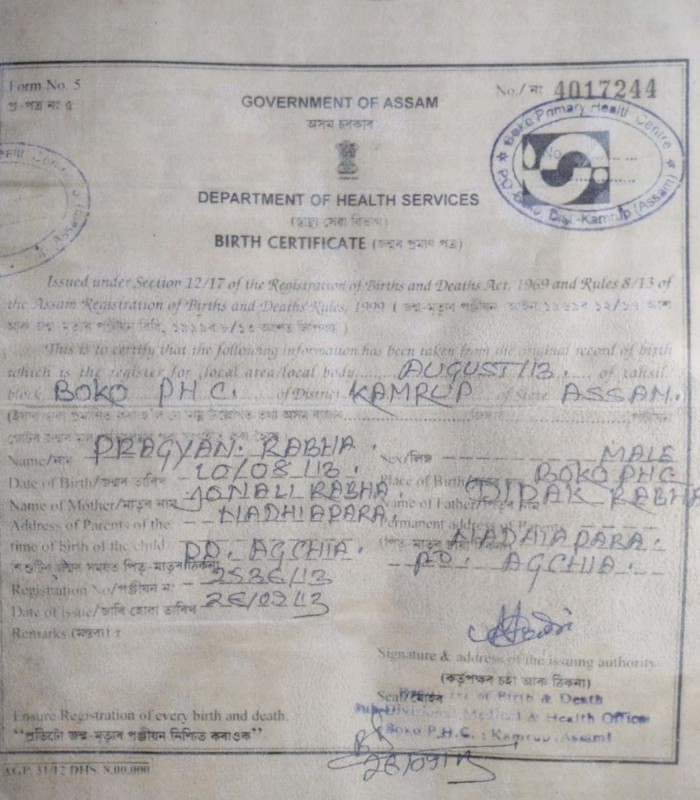 Form No. 5
প্ৰ-পত্ৰ নং ৫
No./ নং 4017244
GOVERNMENT OF ASSAM
অসম চৰকাৰ
Boko Primary Health Centre
P.O-Boko Dist.-Kamrup (Assam)
DEPARTMENT OF HEALTH SERVICES
(স্বাস্থ্য সেৱা বিভাগ)
BIRTH CERTIFICATE (জন্মৰ প্ৰমাণ পত্ৰ)
Issued under Section 12/17 of the Registration of Births and Deaths Act, 1969 and Rules 8/13 of
the Assam Registration of Births and Deaths Rules, 1999 ( জন্ম-মৃত্যুৰ পঞ্জীয়ন আইন
This is to certify that the following information has been taken from the original record of birth
which is the register for (local area/local body AUGUST/13. of tahsil
block BOKO PHC. of District KAMRUP of State ASSAM.
Name/নাম PRAGYAN. RABHA. Sex/লিঙ্গ MALE
Date of Birth/জন্মৰ তাৰিখ 20/08/13. Place of Birth BOKO PHC
Name of Mother/মাতৃৰ নাম JONALI RABHA. Name of Father RABHA
Address of Parents of the Permanent address of Parents
time of birth of the child PO. AGCHIA.
PO. AGCHIA.
Registration No/পঞ্জীয়ন নং 2536/13
Date of issue 26/09/13
Remarks (মন্তব্য) :
Signature & address of the issuing authority
(কৰ্তৃপক্ষৰ চহী আৰু ঠিকনা)
Seal/মোহৰ of Birth & Death
Medical & Health Officer
Boko P.H.C. : Kamrup, Assam
Ensure Registration of every birth and death.
"প্ৰতিটো জন্ম-মৃত্যুৰ পঞ্জীয়ন নিশ্চিত কৰাওক"
26/09/13
AGP. 31/12 DHS. 8,00,000